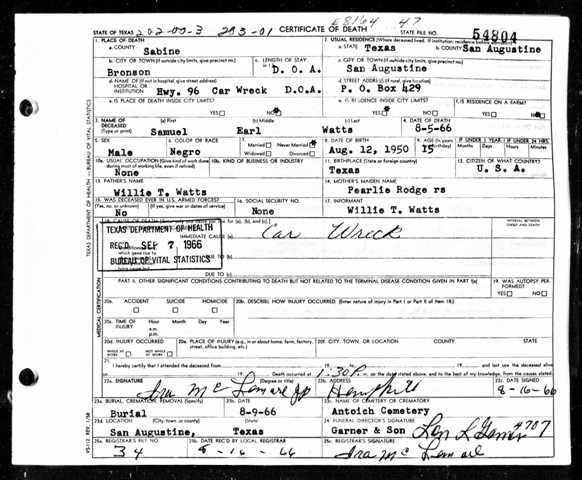 E8164 47
STATE OF TEXAS 202-00-3 293-01 CERTIFICATE OF DEATH STATE FILE NO. 54804
1. PLACE OF DEATH 2. USUAL RESIDENCE (Where deceased lived. If institution: residence before admission)
a. COUNTY Sabine a. STATE Texas b. COUNTY San Augustine
b. CITY OR TOWN (If outside city limits, give precinct no.) Bronson c. LENGTH OF STAY D. O. A. c. CITY OR TOWN (If outside city limits, give precinct no.) San Augustine
d. NAME OF (If not in hospital, give street address) HOSPITAL OR INSTITUTION Hwy. 96 Car Wreck D.O.A. d. STREET ADDRESS (If rural, give location) P. O. Box 429
e. IS PLACE OF DEATH INSIDE CITY LIMITS? YES NO e. IS RESIDENCE INSIDE CITY LIMITS? YES NO f. IS RESIDENCE ON A FARM? YES NO
3. NAME OF DECEASED (Type or print) (a) First Samuel (b) Middle Earl (c) Last Watts 4. DATE OF DEATH 8-5-66
5. SEX Male 6. COLOR OR RACE Negro 7. Married Never Married Widowed Divorced 8. DATE OF BIRTH Aug. 12, 1950 9. AGE 15 IF UNDER 1 YEAR Months Days IF UNDER 24 HRS. Hours Minutes
10a. USUAL OCCUPATION (Give kind of work done during most of working life, even if retired) None 10b. KIND OF BUSINESS OR INDUSTRY 11. BIRTHPLACE (State or foreign country) Texas 12. CITIZEN OF WHAT COUNTRY? U. S. A.
13. FATHER'S NAME Willie T. Watts 14. MOTHER'S MAIDEN NAME Pearlie Rodge rs
15. WAS DECEASED EVER IN U.S. ARMED FORCES? (Yes, no, or unknown) (If yes, give war or dates of service) No 16. SOCIAL SECURITY NO. None 17. INFORMANT Willie T. Watts
18. CAUSE OF DEATH INTERVAL BETWEEN ONSET AND DEATH
IMMEDIATE CAUSE (a) Car Wreck
TEXAS DEPARTMENT OF HEALTH
REC'D SEP 7 1966
BUREAU OF VITAL STATISTICS
DUE TO (c)
PART II. OTHER SIGNIFICANT CONDITIONS CONTRIBUTING TO DEATH BUT NOT RELATED TO THE TERMINAL DISEASE CONDITION GIVEN IN PART I(a) 19. WAS AUTOPSY PERFORMED? YES NO
20a. ACCIDENT SUICIDE HOMICIDE 20b. DESCRIBE HOW INJURY OCCURRED. (Enter nature of injury in Part I or Part II of item 18.)
20c. TIME OF INJURY Hour a.m. p.m. Month Day Year
20d. INJURY OCCURRED WHILE AT WORK NOT WHILE AT WORK 20e. PLACE OF INJURY (e.g., in or about home, farm, factory, street, office building, etc.) 20f. CITY, TOWN, OR LOCATION COUNTY STATE
21. I hereby certify that I attended the deceased from 19 to 19 and last saw the deceased alive
on 19 Death occurred at 1:30P. m. on the date stated above, and to the best of my knowledge, from the causes stated.
22a. SIGNATURE Ira Mc Lemore JP (Degree or title) 22b. ADDRESS Hemphill 22c. DATE SIGNED 8-16-66
23a. BURIAL, CREMATION, REMOVAL (Specify) Burial 23b. DATE 8-9-66 23c. NAME OF CEMETERY OR CREMATORY Antoich Cemetery
23d. LOCATION (City, town, or county) (State) San Augustine, Texas 24. FUNERAL DIRECTOR'S SIGNATURE Garner & Son 4707
25a. REGISTRAR'S FILE NO. 34 25b. DATE REC'D BY LOCAL REGISTRAR 8-16-66 25c. REGISTRAR'S SIGNATURE Ira Mc Lemore
TEXAS DEPARTMENT OF HEALTH — BUREAU OF VITAL STATISTICS
MEDICAL CERTIFICATION
VS-112 REV. 1/58